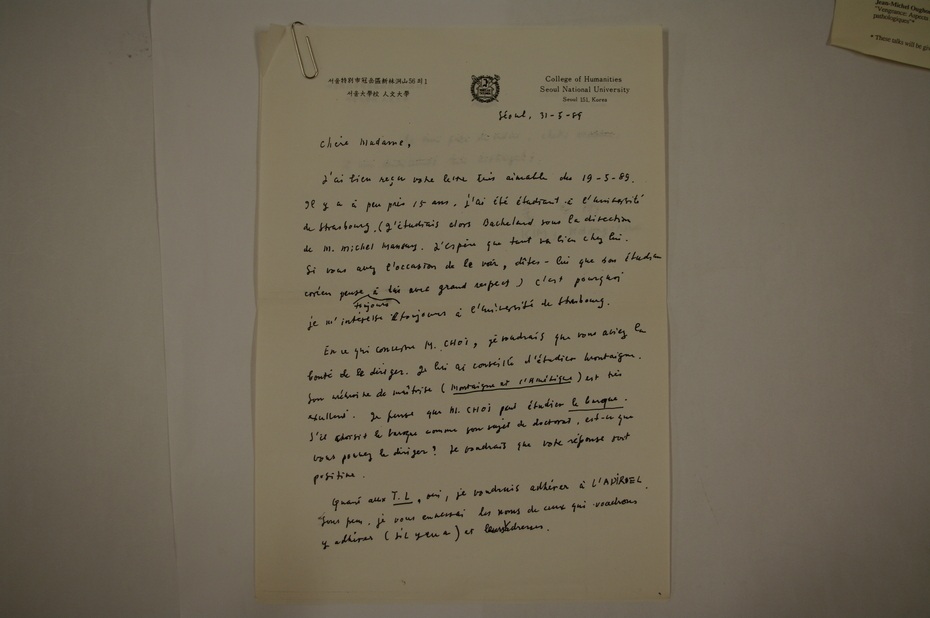 Jean-Michel Oughou
"Vengeance: Aspects
pathologiques"*
* These talks will be giv
서울特別市冠岳區新林洞山56의1
서울大學校 人文大學
College of Humanities
Seoul National University
Seoul 151, Korea
Séoul, 31-5-89
Chère Madame,
J'ai bien reçu votre lettre très aimable du 19-5-89.
Il y a à peu près 15 ans, j'ai été étudiant à l'Université
de Strasbourg. (J'étudiais alors Bachelard sous la direction
de M. Michel Mansuy. J'espère que tout va bien chez lui.
Si vous avez l'occasion de le voir, dîtes-lui que son étudian
coréen pense à lui avec grand respect) C'est pourquoi
toujours
je m'intéresse toujours à l'Université de Strasbourg.
En ce qui concerne M. CHOI, je voudrais que vous ayiez la
bonté de le diriger. Je lui ai conseillé d'étudier Montaigne.
Son mémoire de maîtrise (Montaigne et l'Amérique) est très
excellent. Je pense que M. CHOI peut étudier le baroque.
S'il choisit le baroque comme son sujet de doctorat, est-ce que
vous pouvez le diriger? Je voudrais que votre réponse soit
positive.
Quant aux T.L, oui, je voudrais adhérer à l'
Sous peu, je vous enverrai les noms de ceux qui voudrons
y adhérer (s'il y en a) et leurs adresses.